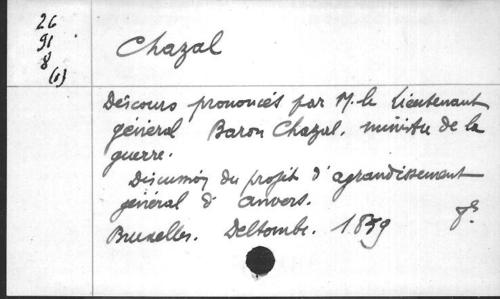 26
91
8
(1)
Chazal
Discours prononcés par M. le Lieutenant
général Baron Chazal. ministre de la
guerre.
Discussion du projet d'agrandissement
général d'Anvers.
Bruxelles. Deltombe. 1859 f.s